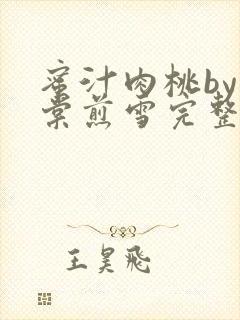 蜜汁肉桃by
棠煎雪完整
王昊飛